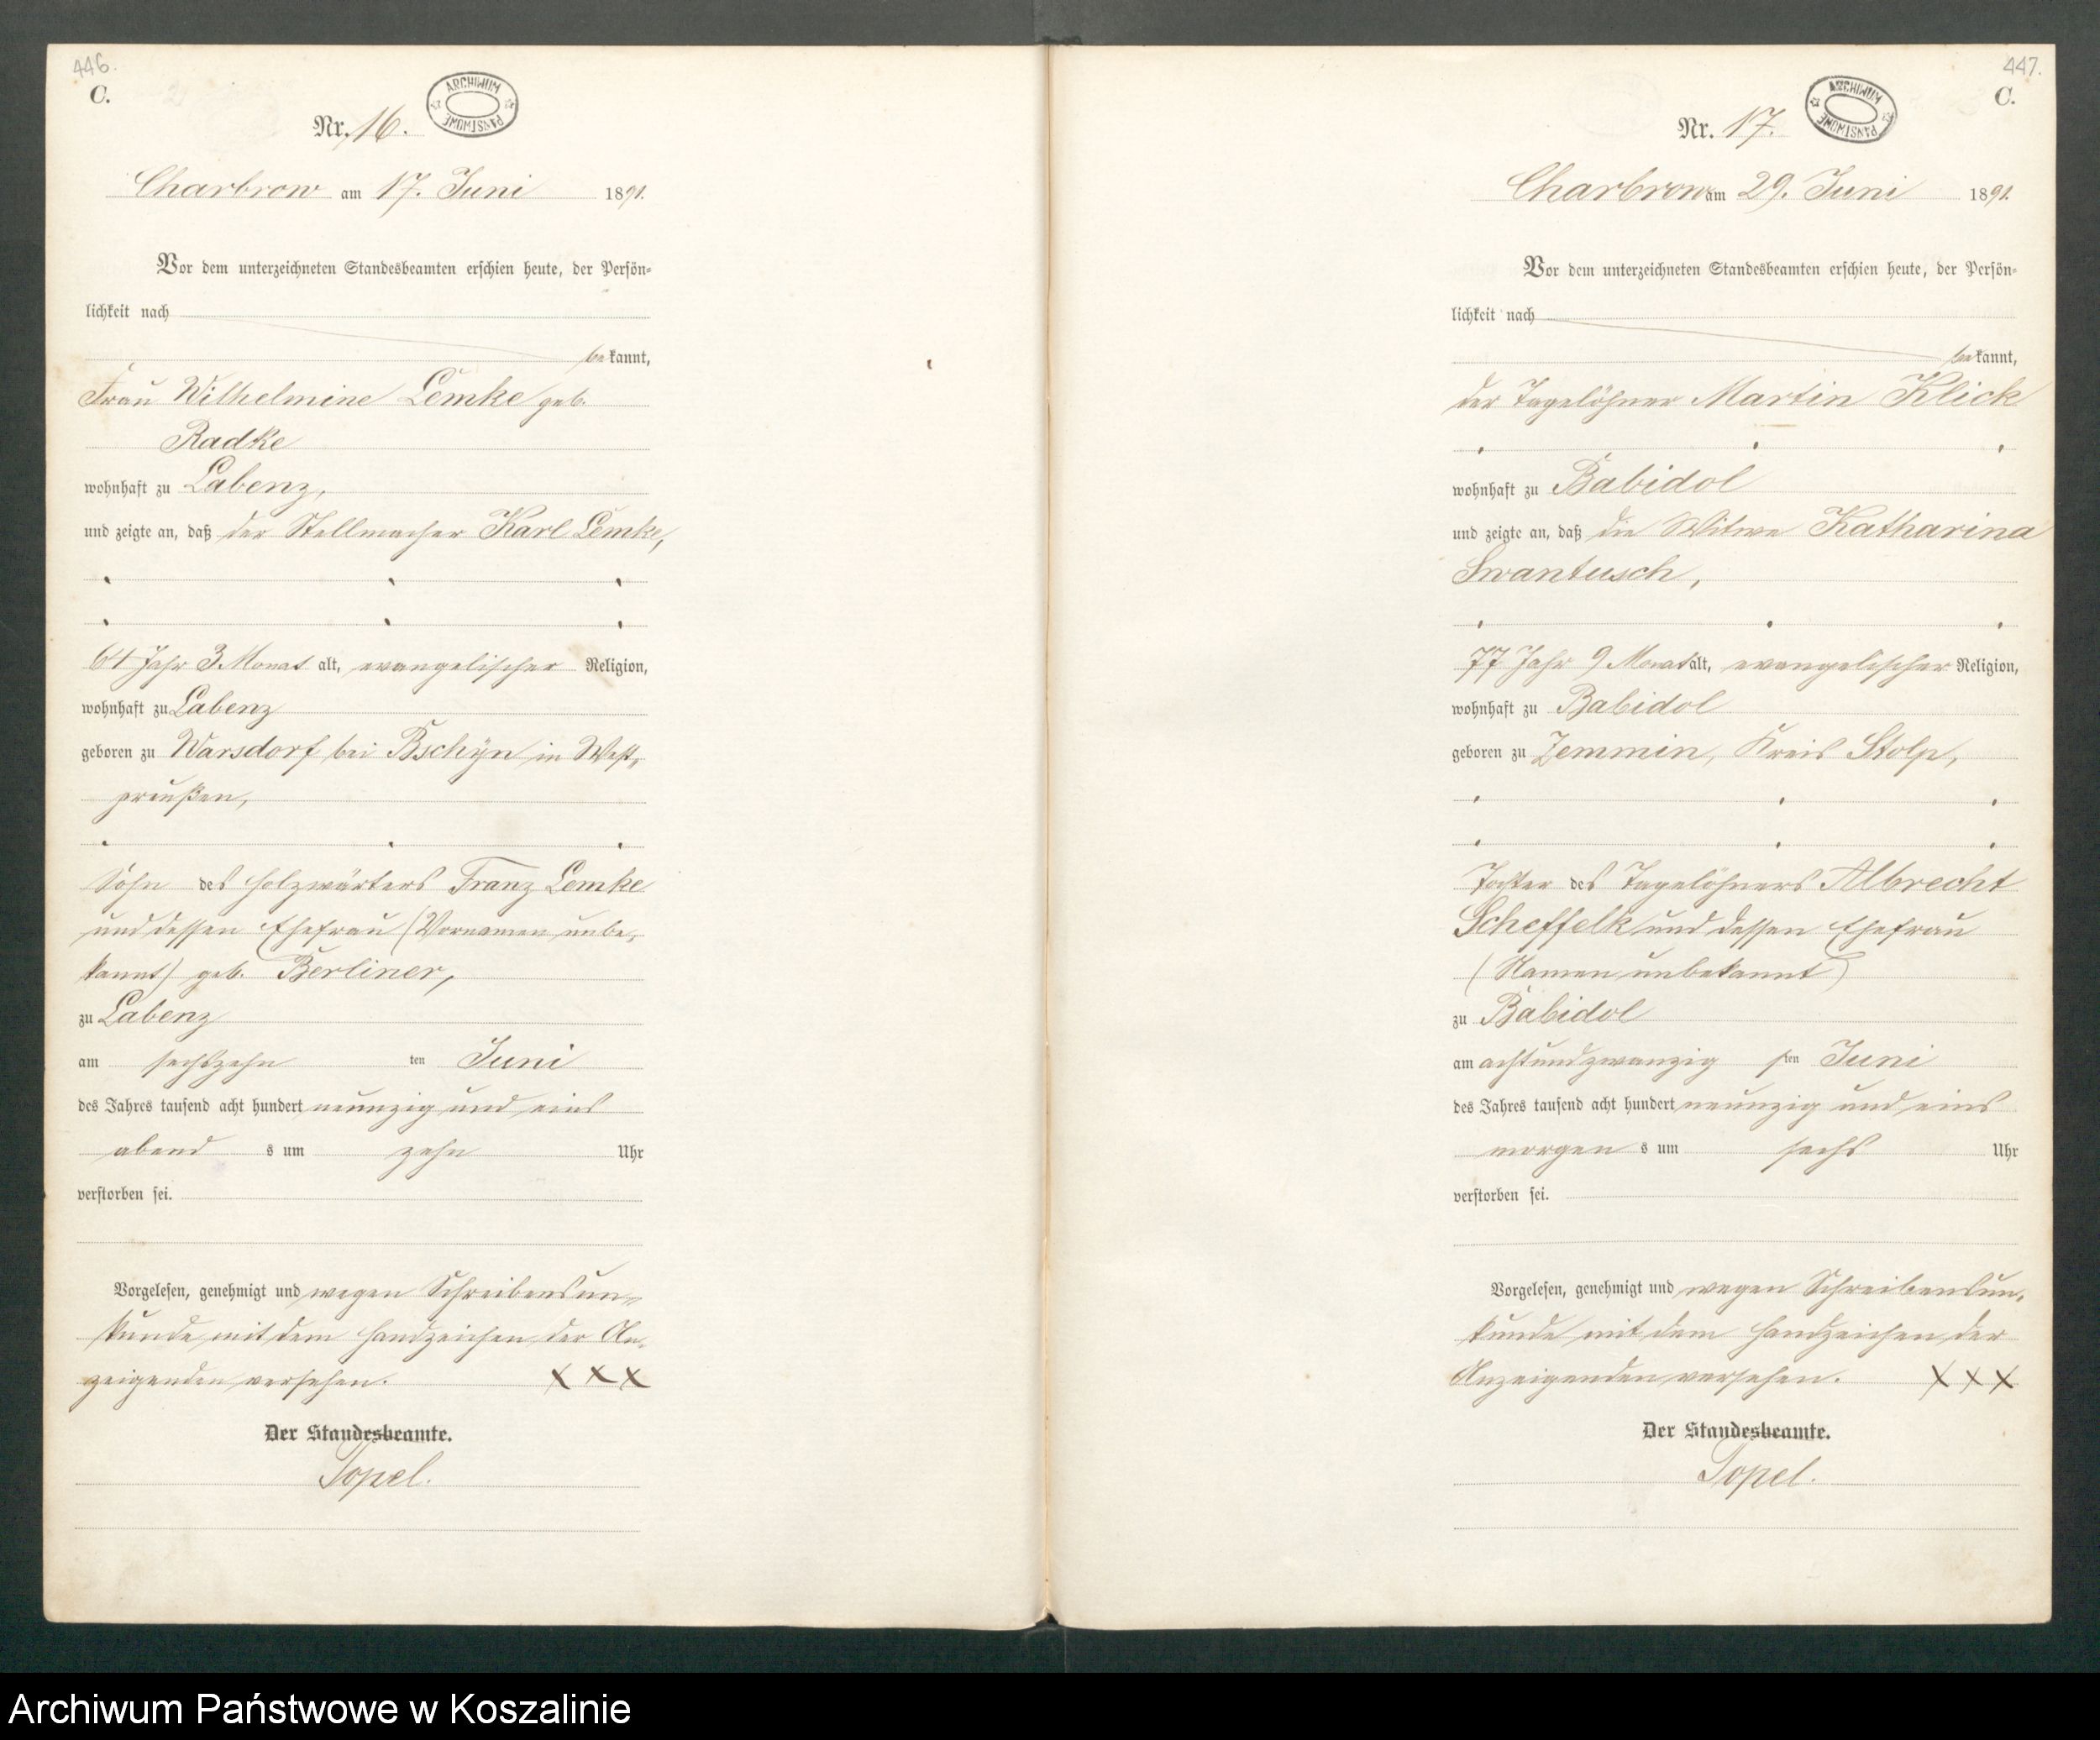 446.
C.
ARCHIWUM PAŃSTWOWE
Nr. 16.
Charbrow am 17. Juni 1891.
Vor dem unterzeichneten Standesbeamten erschien heute, der Persön-
lichkeit nach
bekannt,
Frau Wilhelmine Lemke geb.
Radke
wohnhaft zu Labenz,
und zeigte an, daß der Stellmacher Karl Lemke,
64 Jahr 3 Monat alt, evangelischer Religion,
wohnhaft zu Labenz
geboren zu Warsdorf bei Bschÿn in West-
preußen,
Sohn des Holzwärters Franz Lemke
und dessen Ehefrau (Vornamen unbe-
kannt) geb. Berliner,
zu Labenz
am sechszehn ten Juni
des Jahres tausend acht hundert neunzig und eins
abend s um zehn Uhr
verstorben sei.
Vorgelesen, genehmigt und wegen Schreibensun-
kunde mit dem Handzeichen der An-
zeigenden versehen. XXX
Der Standesbeamte.
Topel.
447.
C.
ARCHIWUM PAŃSTWOWE
Nr. 17.
Charbrow am 29. Juni 1891.
Vor dem unterzeichneten Standesbeamten erschien heute, der Persön-
lichkeit nach
bekannt,
der Tagelöhner Martin Klick
wohnhaft zu Babidol
und zeigte an, daß die Witwe Katharina
Swantusch,
77 Jahr 9 Monat alt, evangelischer Religion,
wohnhaft zu Babidol
geboren zu Zemmin, Kreis Stolp,
Tochter des Tagelöhners Albrecht
Scheffelk und dessen Ehefrau
(Namen unbekannt)
zu Babidol
am achtundzwanzig sten Juni
des Jahres tausend acht hundert neunzig und eins
morgen s um sechs Uhr
verstorben sei.
Vorgelesen, genehmigt und wegen Schreibensun-
kunde mit dem Handzeichen der
Anzeigenden versehen. XXX
Der Standesbeamte.
Topel.
Archiwum Państwowe w Koszalinie